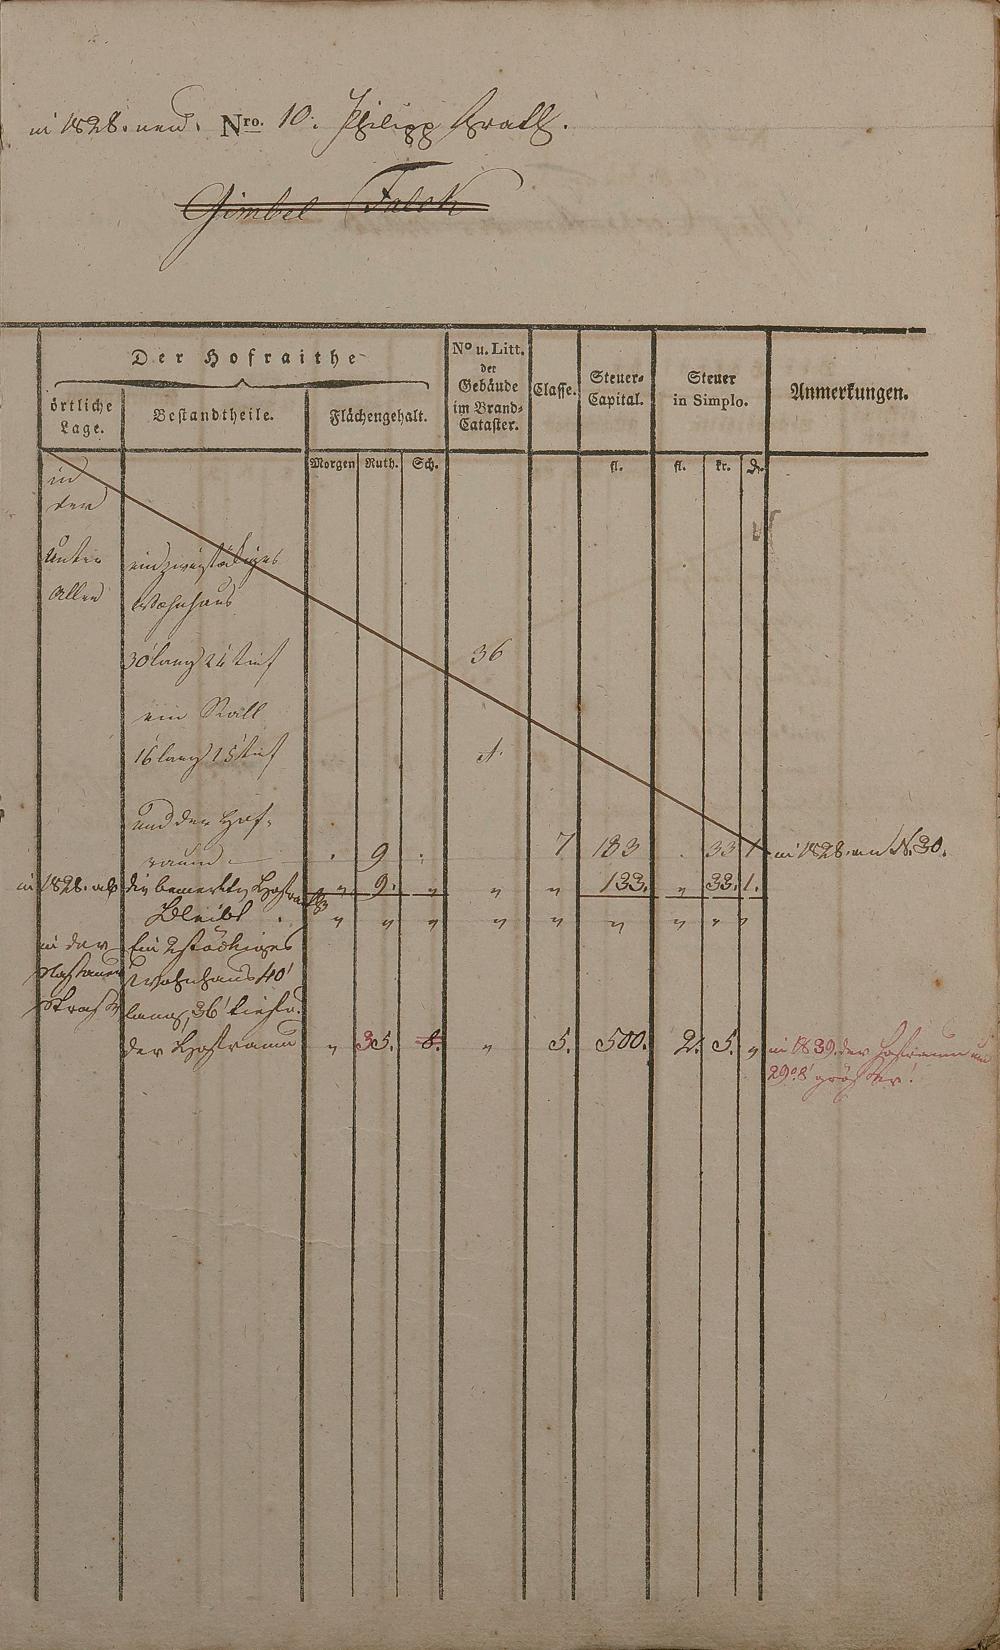 in 1828. neu. Nro. 10. Philipp
Gimbel Falck
Der Hofraithe
örtliche Lage.
Bestandtheile.
Flächengehalt.
No u. Litt. der Gebäude im Brand-Cataster.
Classe.
Steuer-Capital.
Steuer in Simplo.
Anmerkungen.
Morgen Ruth. Sch. fl. fl. kr. d.
in
der
Unter ein zweistöckiges
Allee Wohnhaus
30' lang 24' tief 36
ein Stall
16' lang 15' tief A.
und der Hof-
raum 9 7 133 . 33 1 in 1828. an N. 30.
in 1828. ab die bemerkte " 9. " " " 133. " 33. 1.
Bleibt . " " " " " " " " "
in der Ein 2stöckiges
Wohnhaus 40'
Straße lang, 36' tief u.
der Hofraum " 35. 8. " 5. 500. 2. 5. " in 1839. der Hofraum um
29° 8' größer!